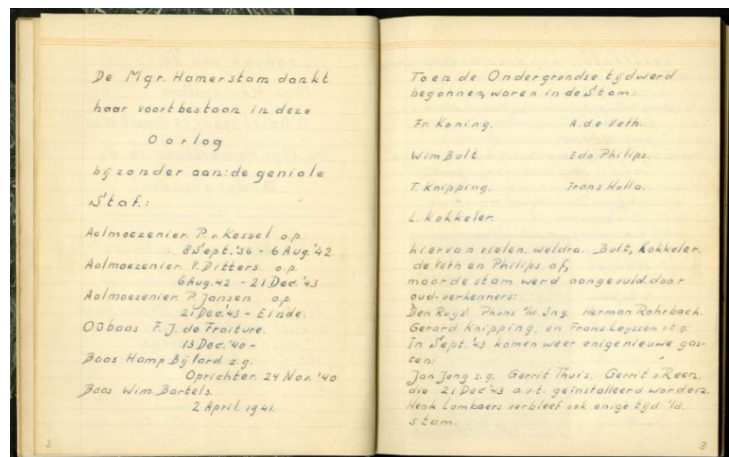 De Mgr. Hamerstam dankt
haar voortbestaan in deze
Oorlog
bijzonder aan: de geniale
Staf.:
Aalmoezenier. P. v. Kessel o.p.
8 Sept. '36 - 6 Aug. '42
Aalmoezenier. V. Ditters. o.p.
6 Aug. 42 - 21 Dec. '43
Aalmoezenier. P. Jansen o.p.
21 Dec. '43 - Einde.
OJbaas F. J. de Fraiture.
13 Dec. '40 -
Baas Hamp Bijlard z.g.
Oprichter. 24 Nov. '40
Baas Wim Bartels.
2 April. 1941.
2
Toen de Ondergrondse tijd werd
begonnen, waren in de Stam:
Fr. Koning. A. de Veth.
Wim Bult Edo Philips.
T. Knipping. Frans Holla.
L. Kokkeler.
hiervan vielen. weldra. Bult, Kokkeler.
de Veth en Philips af,
maar de stam werd aangevuld. door
oud-verkenners:
Ben Ruys. Phons Herman Rohrbach.
Gerard Knipping. en Frans Leyssen
In Sept. '43 komen weer enige nieuwe gas-
ten:
Jan Jong z.g. Gerrit Thuis. Gerrit v. Reen.
die 21 Dec '43 a.v.t. geïnstalleerd worden.
Henk Lombaers verbleef ook enige tijd i/d.
stam.
3